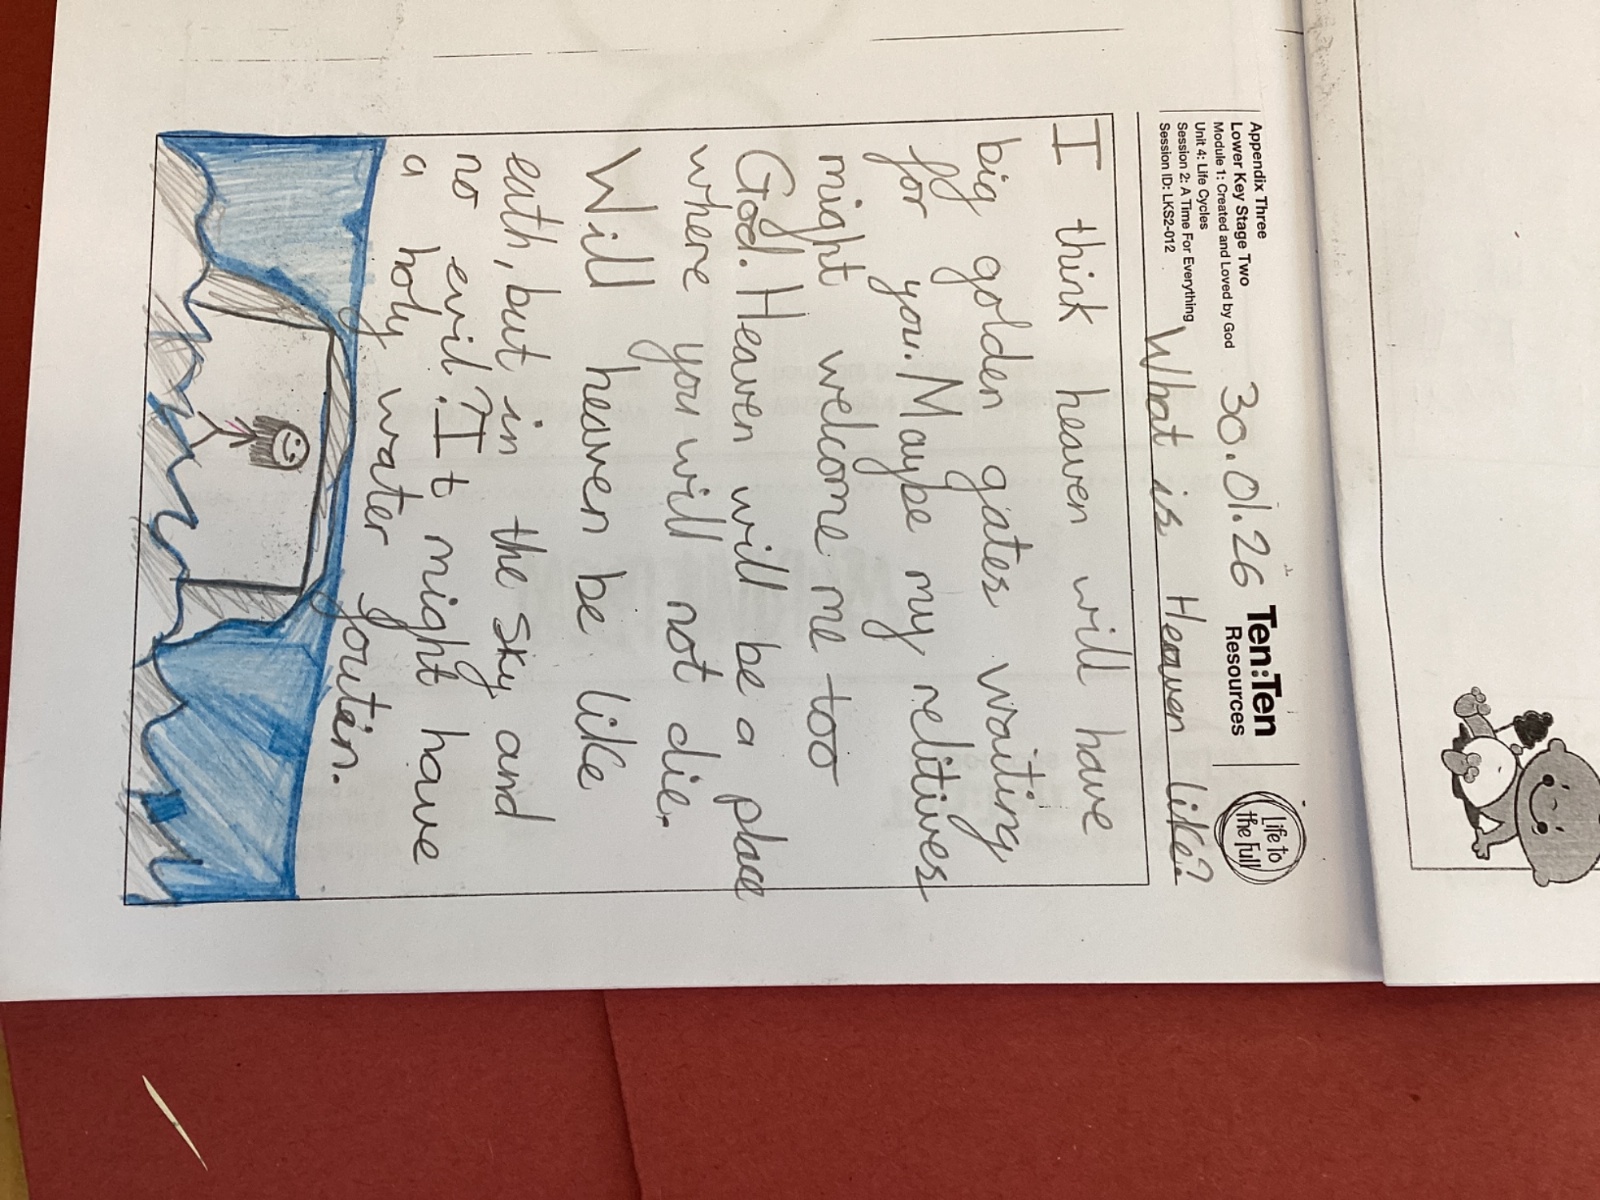 Appendix Three
Lower Key Stage Two
Module 1: Created and Loved by God
Unit 4: Life Cycles
Session 2: A Time For Everything
Session ID: LKS2-012
30.01.26
Ten:Ten
Resources
Life to
the Full
What is Heaven like?
I think heaven will have
big golden gates waiting
for you. Maybe my relitives
might welcome me too
God. Heaven will be a place
where you will not die.
Will heaven be like
eath, but in the sky and
no evil? It might have
a holy water foutin.